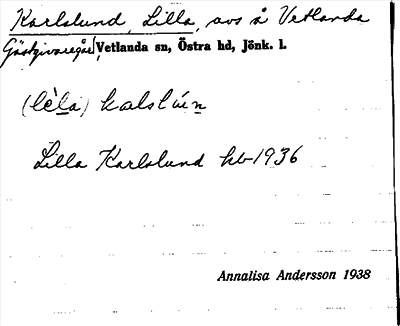 Karlslund, Lilla, avs å Vetlanda
Gästgivaregår, Vetlanda sn, Östra hd, Jönk. l.
Lilla Karlslund hb 1936
Annalisa Andersson 1938